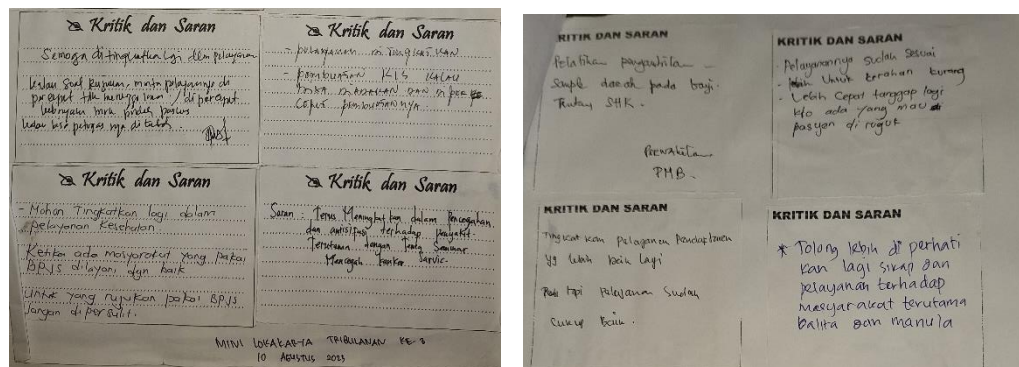 Kritik dan Saran
Semoga ditingkatkan lagi dlm pelayanan
kalau soal rujukan, minta pelayannya di
percepat tdk menunggu lama / di percepat
kalau bisa petugas nya di
Kritik dan Saran
- pelayanan di Tingkatkan
- pembuatan KIS kalau
bisa
cepat pembuatannya
Kritik dan Saran
- Mohon Tingkatkan lagi dalam
pelayanan Kesehatan.
Ketika ada masyarakat yang pakai
BPJS dilayani dgn baik
Untuk yang rujukan pakai BPJS
Jangan dipersulit.
Kritik dan Saran
Saran : Terus Meningkatkan dalam Pencegahan
dan antisipasi terhadap Penyakit.
Terutama dengan Seminar
Mencegah kanker Servic.
MINI LOKAKARYA TRIBULANAN KE-3
10 AGUSTUS 2023
RITIK DAN SARAN
Pelatihan pengambilan
Sample darah pada bayi.
Tentang SHK.
Perwakilan
PMB.
KRITIK DAN SARAN
Pelayanannya sudah sesuai
- Untuk terahan kurang
- Lebih Cepat tanggap lagi
klo ada yang mau
pasyen di rujuk
KRITIK DAN SARAN
Tingkat kan Pelayanan Pendaftaran
yg lebih baik lagi
tapi Pelayanan Sudah
Cukup Baik.
KRITIK DAN SARAN
* Tolong lebih di perhati
kan lagi sikap dan
pelayanan terhadap
masyarakat terutama
balita dan manula